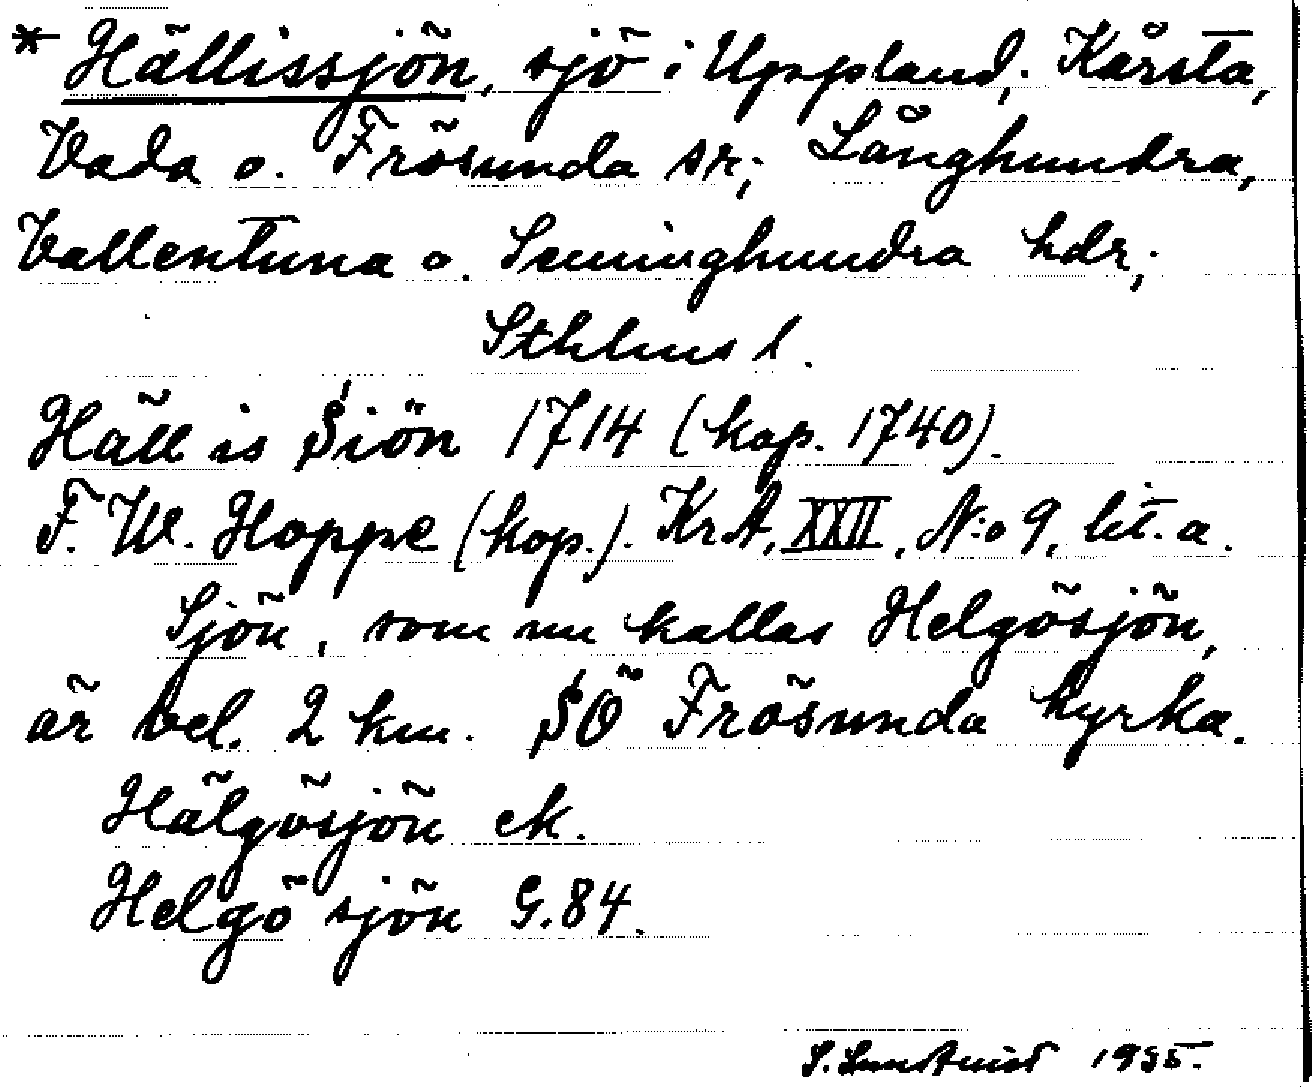 * Hällissjön, sjö i Uppland; Kårsta,
Vada o. Frösunda sr; Långhundra,
Vallentuna o. Seminghundra hdr;
Sthlms l.
Häll is Siön 1714 (kop. 1740).
F. W. Hoppe (kop.). KrA, XXII, N:o 9, lit. a.
Sjön, som nu kallas Helgösjön,
är bel. 2 km. SÖ Frösunda kyrka.
Hälgösjön ek.
Helgö sjön G. 84.
S. Lundqvist 1955.